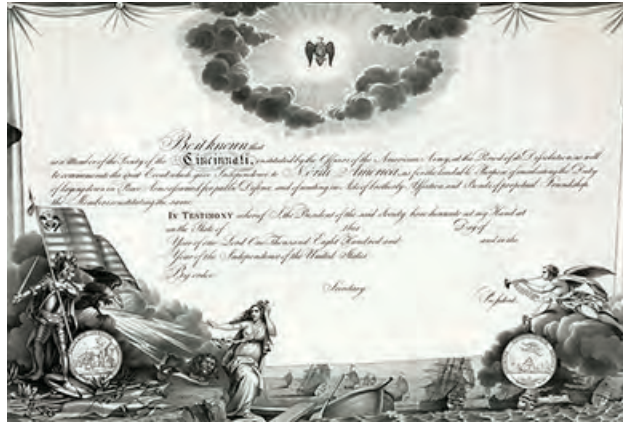 Be it known that
is a Member of the Society of the Cincinnati, instituted by the Officers of the American Army, at the Period of its Dissolution, as well
to commemorate the great Event which gave Independence to North America, as for the laudable Purpose of inculcating the Duty
of laying down in Peace Arms assumed for public Defence, and of uniting in Acts of brotherly Affection and Bonds of perpetual Friendship
the Members constituting the same.
IN TESTIMONY whereof I, the President of the said Society, have hereunto set my Hand at
in the State of this Day of
Year of our Lord One Thousand Eight Hundred and and in the
Year of the Independence of the United States.
By order.
Secretary. President.